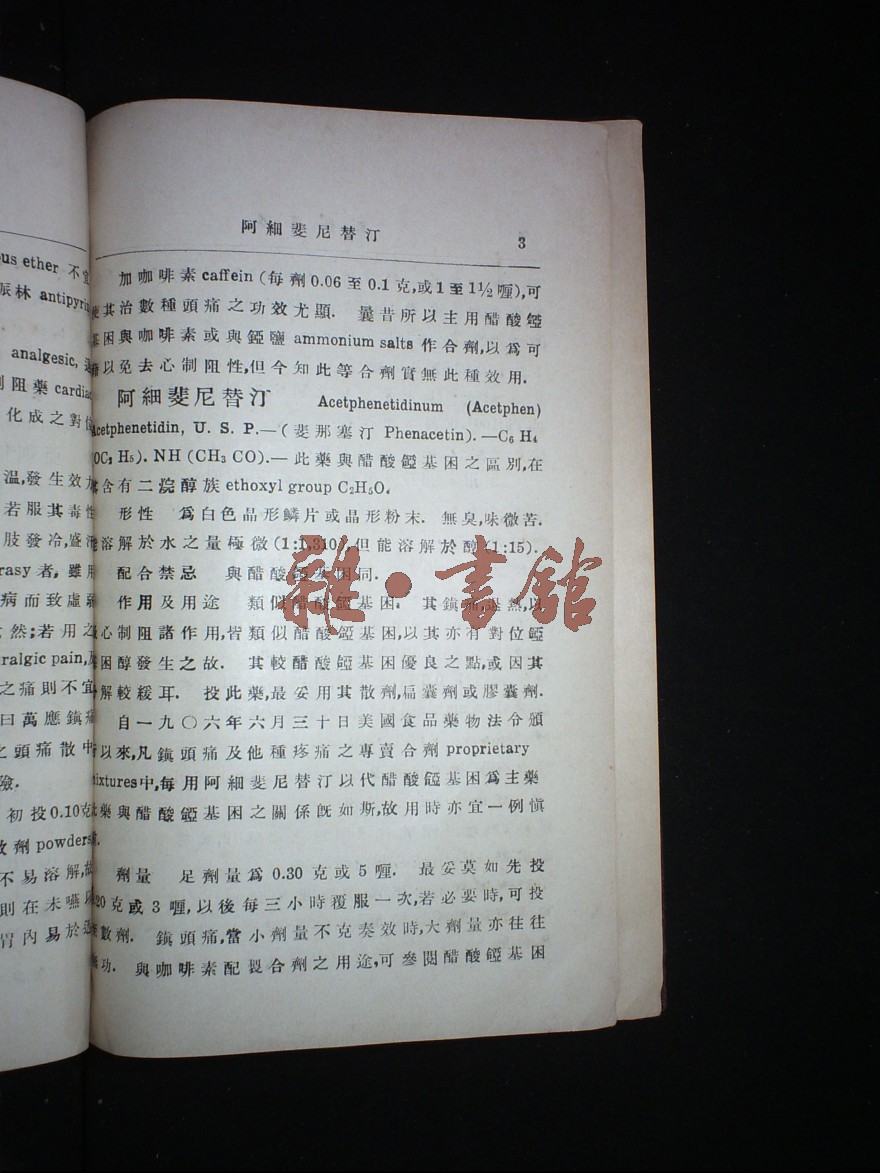 ous ether 不宜
antipyrin
analgesic,
阻藥 cardiac
化成之對位
溫,發生效力
若服其毒性
肢發冷,盛汗
rasy 者,雖用
病而致虛弱
然;若用之
ralgic pain,
之痛則不宜
曰萬應鎮痛
之頭痛散中
險.
初投0.10克
散劑 powders
不易溶解,故
則在未嚥以
胃內易於
阿細斐尼替汀 3
加咖啡素 caffein (每劑 0.06 至 0.1 克,或 1 至 1½ 喱),可
其治數種頭痛之功效尤顯. 曩昔所以主用醋酸𨧀
基困與咖啡素或與錏鹽 ammonium salts 作合劑,以爲可
以免去心制阻性,但今知此等合劑實無此種效用.
阿細斐尼替汀 Acetphenetidinum (Acetphen)
Acetphenetidin, U. S. P.—(斐那塞汀 Phenacetin).—C₆ H₄
OC₂ H₅). NH (CH₃ CO).—此藥與醋酸𨧀基困之區別,在
含有二浣醇族 ethoxyl group C₂H₅O.
形性 爲白色晶形鱗片或晶形粉末. 無臭,味微苦.
溶解於水之量極微 (1:1,310), 但能溶解於醇 (1:15).
配合禁忌 與醋酸𨧀基困同.
作用及用途 類似醋酸𨧀基困. 其鎮痛,退熱,以
心制阻諸作用,皆類似醋酸𨧀基困,以其亦有對位𨧀
困醇發生之故. 其較醋酸𨧀基困優良之點,或因其
解較緩耳. 投此藥,最妥用其散劑,扁囊劑或膠囊劑.
自一九〇六年六月三十日美國食品藥物法令頒
以來,凡鎮頭痛及他種疼痛之專賣合劑 proprietary
mixtures中,每用阿細斐尼替汀以代醋酸𨧀基困爲主藥
藥與醋酸𨧀基困之關係旣如斯,故用時亦宜一例愼
劑量 足劑量爲 0.30 克或 5 喱. 最妥莫如先投
20 克或 3 喱,以後每三小時覆服一次,若必要時,可投
數劑. 鎮頭痛,當小劑量不克奏效時,大劑量亦往往
功. 與咖啡素配製合劑之用途,可參閱醋酸𨧀基困
雜·書館